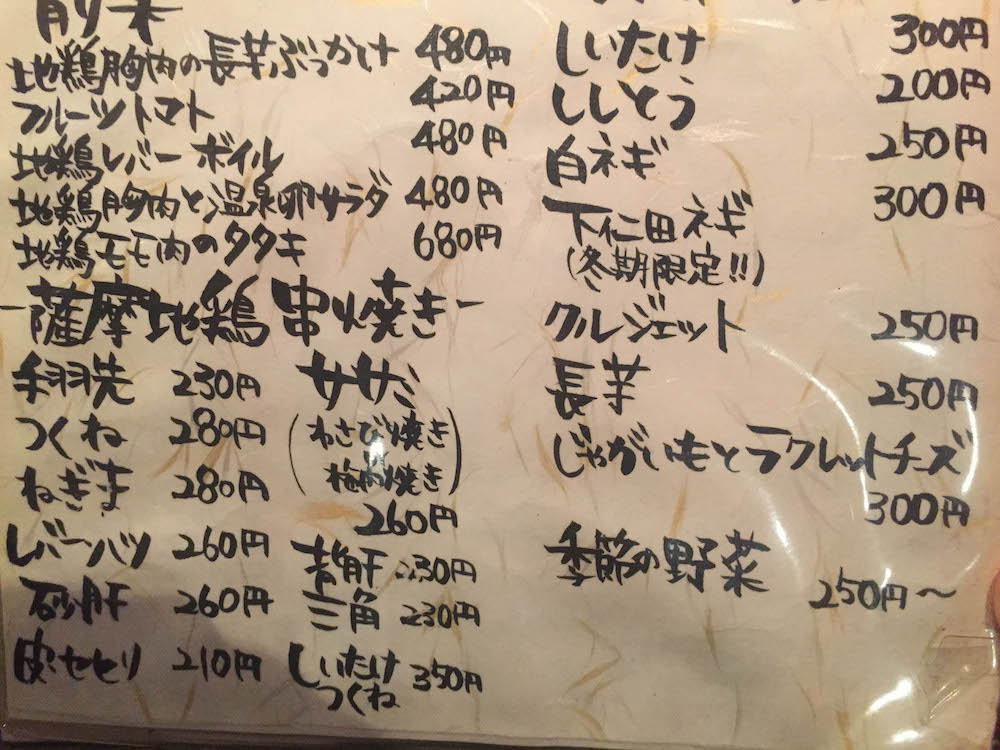 前菜
地鶏胸肉の長芋ぶっかけ 480円
フルーツトマト 420円
地鶏レバーボイル 480円
地鶏胸肉と温泉卵サラダ 480円
地鶏モモ肉のタタキ 680円
-薩摩地鶏串焼き-
手羽先 230円
つくね 280円
ねぎま 280円
レバーハツ 260円
砂肝 260円
皮・セセリ 210円
ササミ
(わさび焼き
梅肉焼き)
260円
背肝 230円
三角 230円
しいたけ
つくね 350円
しいたけ 300円
ししとう 200円
白ネギ 250円
下仁田ネギ 300円
(冬期限定!!)
クルジェット 250円
長芋 250円
じゃがいもとラクレットチーズ
300円
季節の野菜
250円〜